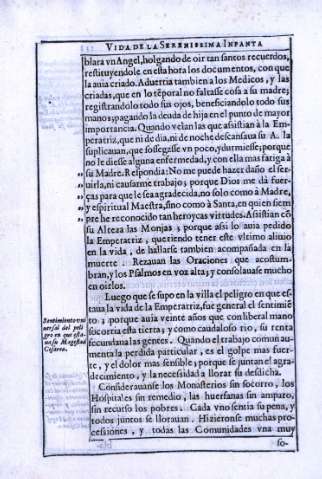 VIDA DE LA SERENISSIMA INFANTA
blara vn Angel, holgando de oir tan santos recuerdos,
restituyendole en esta hora los documentos, con que
la auia criado. Aduertia tambien a los Medicos, y las
criadas, que en lo tẽporal no faltasse cosa a su madre;
registrandolo todo sus ojos, beneficiandolo todo sus
manos; pagando la deuda de hija en el punto de mayor
importancia. Quando veian las que asistian à la Em-
peratriz, que ni de dia, ni de noche descansaua su A. la
suplicauan, que sossegasse vn poco, y durmiesse; porque
no le diesse alguna enfermedad, y con ella mas fatiga à
su Madre. Respondia: No me puede hazer daño el ser-
uirla, ni causarme trabajo; porque Dios me dà fuer-
ças para que le sea agradecida, no solo como à Madre,
y espiritual Maestra, sino como à Santa, en quien siem
pre he reconocido tan heroycas virtudes. Asistian cõ
su Alteza las Monjas; porque assi lo auia pedido
la Emperatriz, queriendo tener este vltimo aliuio
en la vida, de hallarse tambien acompañada en la
muerte. Rezauan las Oraciones que acostum-
bran, y los Psalmos en voz alta; y consolauase mucho
en oirlos.
Luego que se supo en la villa el peligro en que es-
taua la vida de la Emperatriz, fue general el sentimiē
to; porque auia veinte años que con liberal mano
socorria esta tierra; y como caudaloso rio, su renta
fecundaua las gentes. Quando el trabajo comun au-
menta la perdida particular, es el golpe mas fuer-
te, y el dolor mas sensible; porque se juntan el agra-
decimiento, y la necesidad a llorar su desdicha.
Sentimiento vni
uersal del peli
gro en que esta
ua su Magestad
Cesarea.
Considerauanse los Monasterios sin socorro, los
Hospitales sin remedio, las huerfanas sin amparo,
sin recurso los pobres. Cada vno sentia su pena, y
todos juntos se llorauan. Hizieronse muchas pro-
cessiones, y todas las Comunidades vna muy
so-